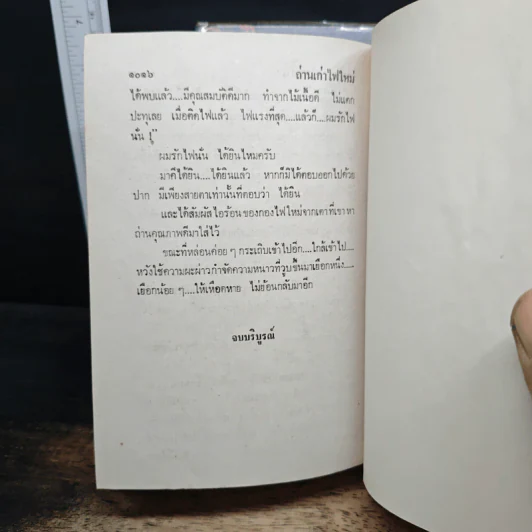 ๑๐๑๖ ถ่านเก่าไฟใหม่
ได้พบแล้ว....มีคุณสมบัติดีมาก ทำจากไม้เนื้อดี ไม่แตก
ปะทุเลย เมื่อติดไฟแล้ว ไฟแรงที่สุด....แล้วก็....ผมรักไฟ
นั่น !"
ผมรักไฟนั่น ได้ยินไหมครับ
มาคีได้ยิน....ได้ยินแล้ว หากก็มิได้ตอบออกไปด้วย
ปาก มีเพียงสายตาเท่านั้นที่ตอบว่า ได้ยิน
และได้สัมผัสไอร้อนของกองไฟใหม่จากเตาที่เขาหา
ถ่านคุณภาพดีมาใส่ไว้
ขณะที่หล่อนค่อย ๆ กระเถิบเข้าไปอีก....ใกล้เข้าไป....
หวังใช้ความผะผ่าวกำจัดความหนาวที่วูบขึ้นมาเยือกหนึ่ง....
เยือกน้อย ๆ....ให้เหือดหาย ไม่ย้อนกลับมาอีก
จบบริบูรณ์